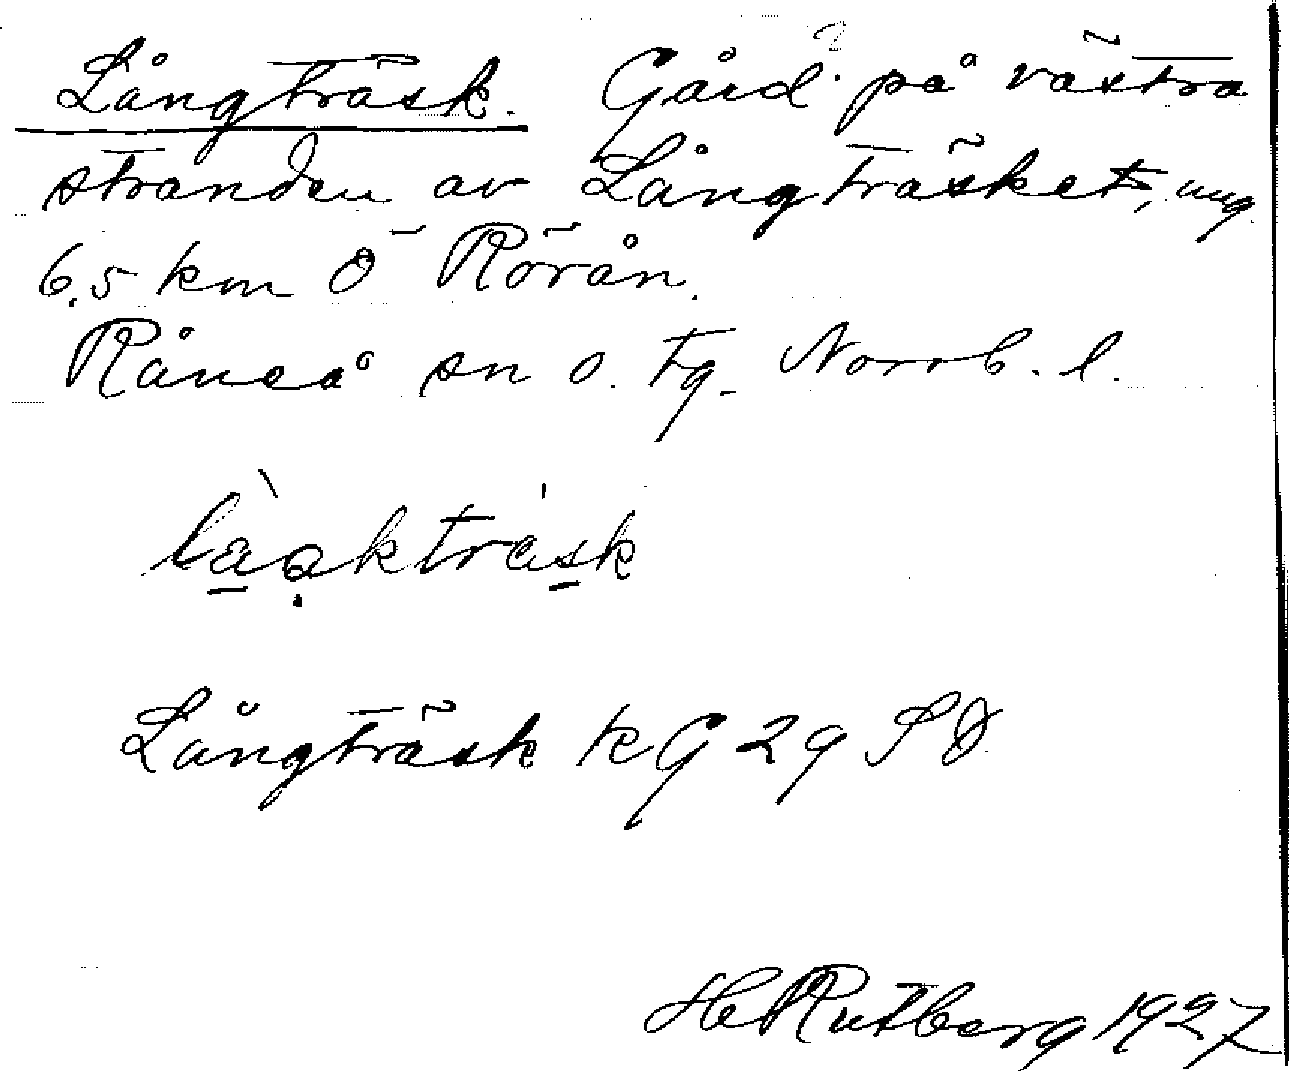 Långträsk. Gård på västra
stranden av Långträsket, ung.
6,5 km Ö Rörån.
Råneå sn o. tg. Norrb. l.
Långträsk kG 29 SD
He Rutberg 1927